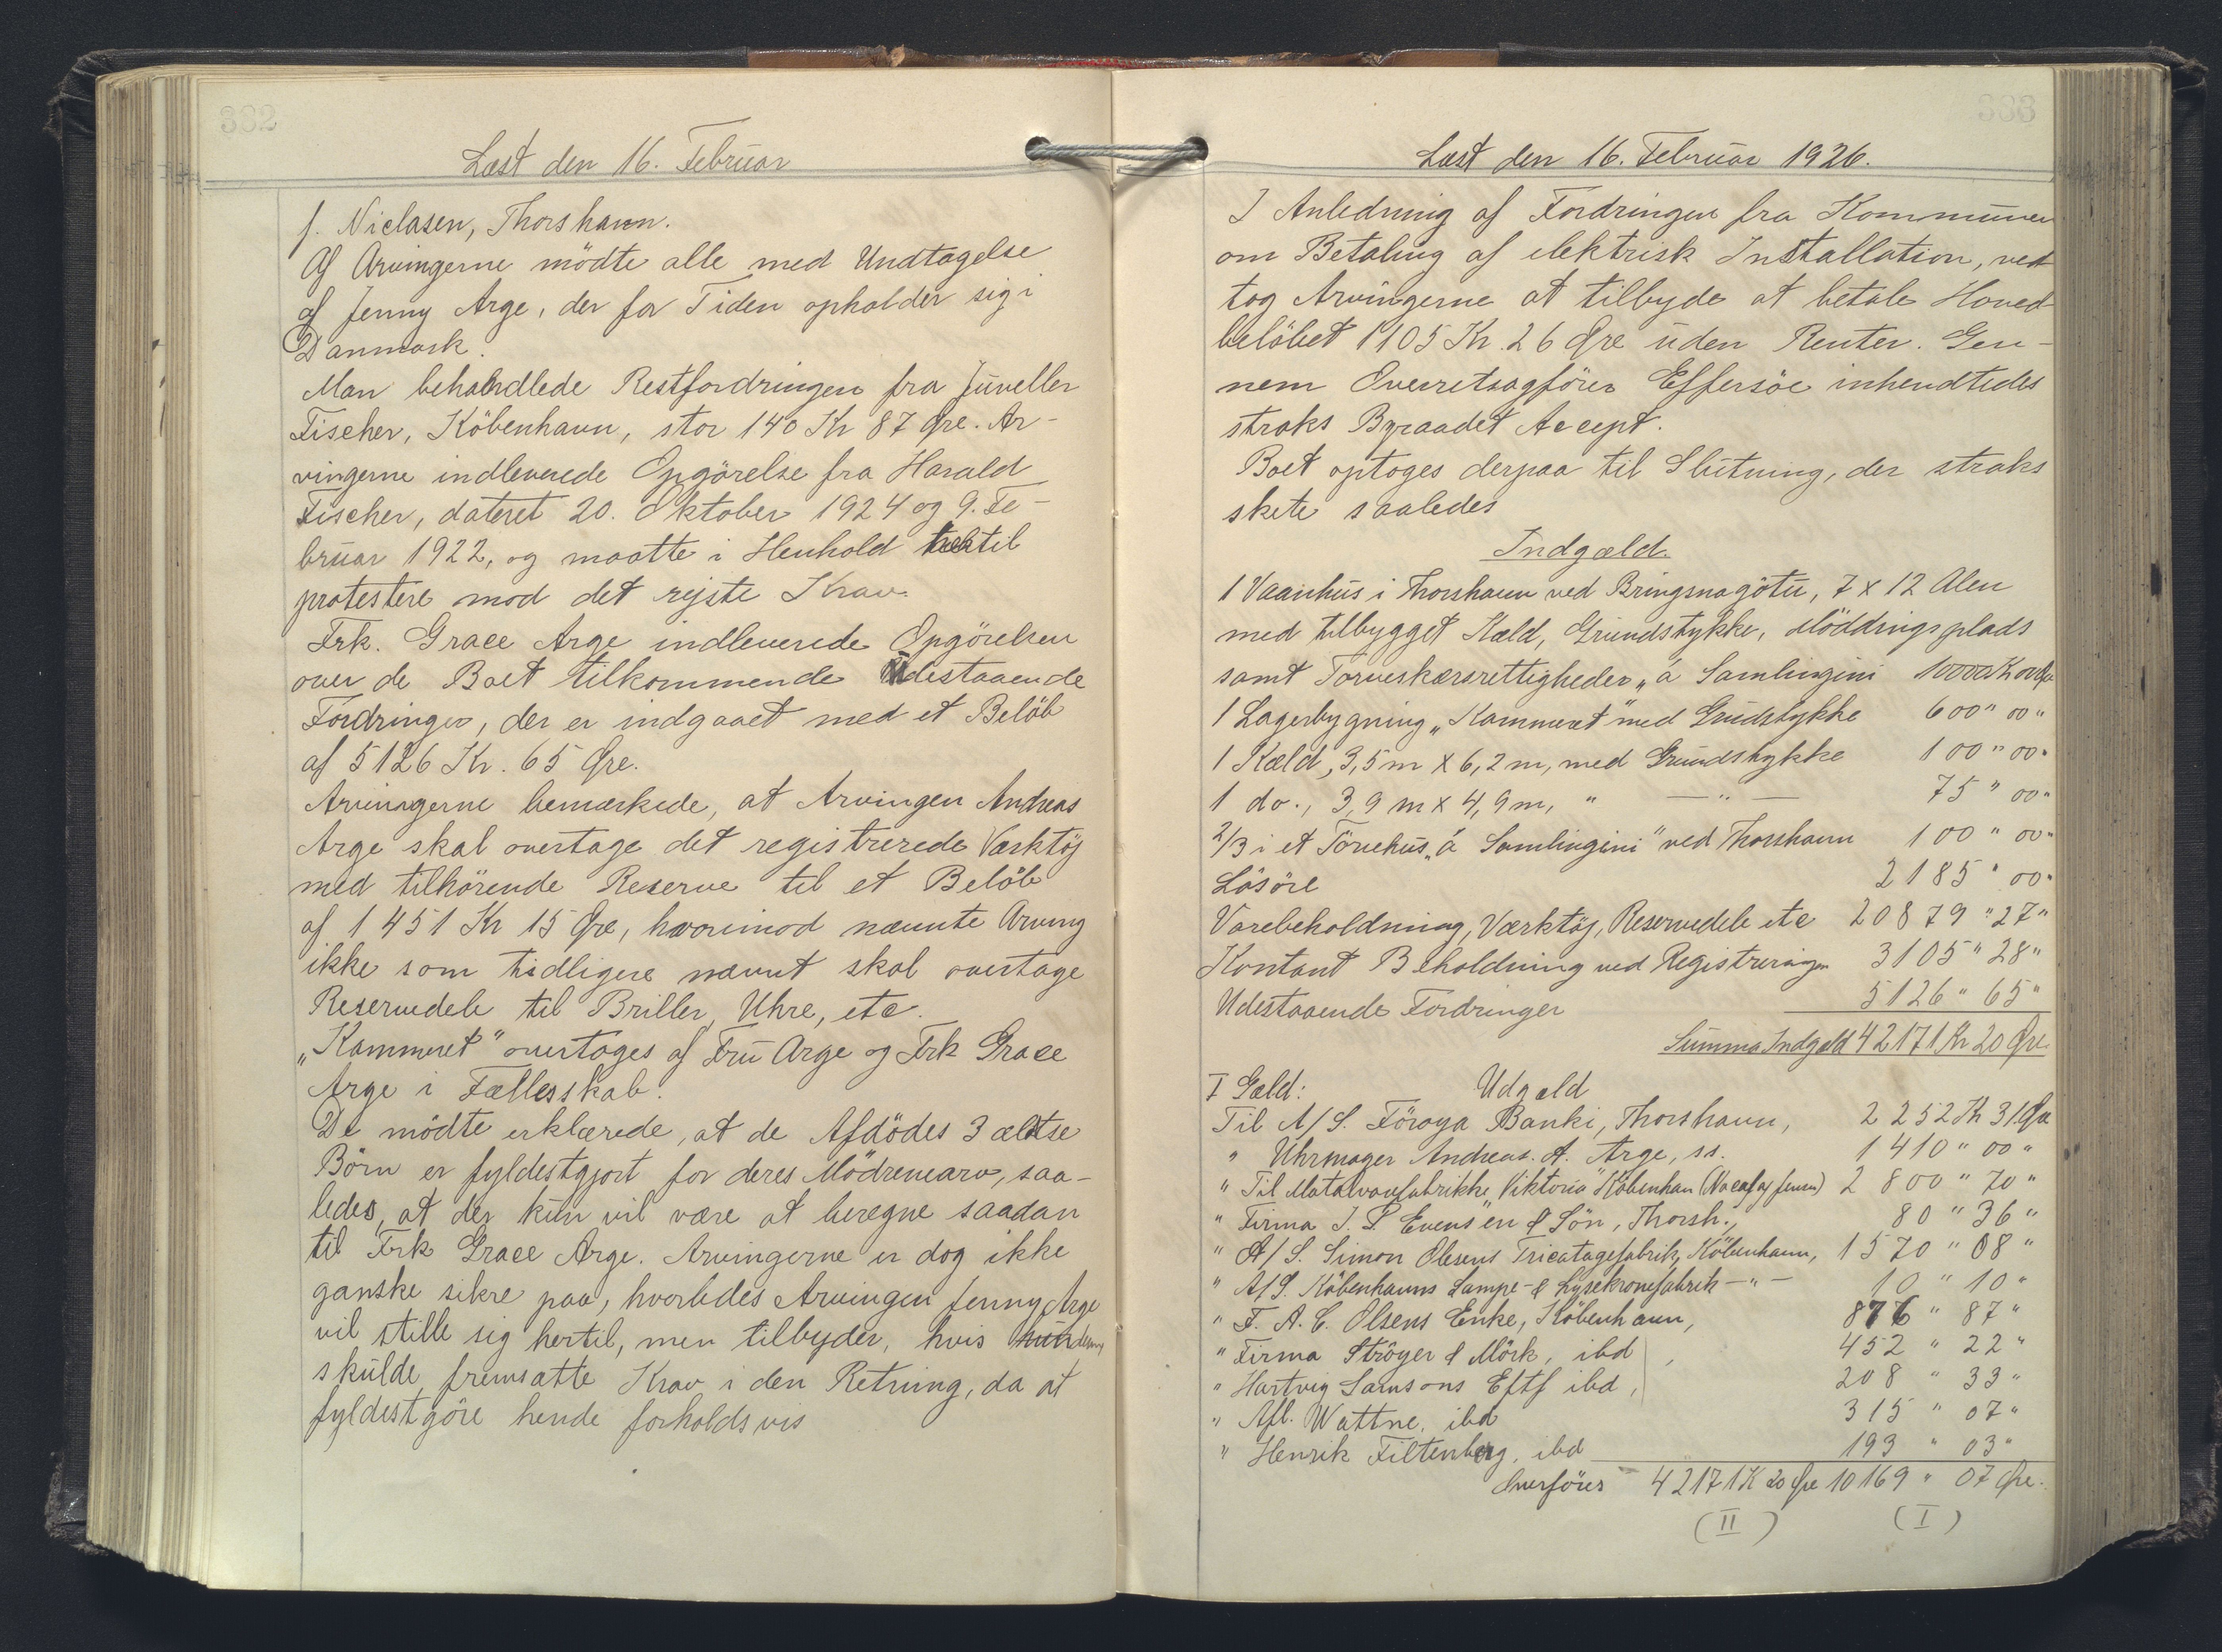 332
Læst den 16. Februar
f. Niclasen, Thorshavn.
Af Arvingerne mödte alle med Undtagelse
af Jenny Arge, der for Tiden opholder sig i
Danmark.
Man behandlede Restfordringen fra Juveller
Fischer, Köbenhavn, stor 140 Kr 87 Øre. Ar-
vingerne indleverede Opgörelse fra Harald
Fischer, dateret 20. Oktober 1924 og 9. Fe-
bruar 1922, og maatte i Henhold hertil
protestere mod det rejste Krav.
Frk. Grace Arge indleverede Opgörelsen
over de Boet tilkommende Udestaaende
Fordringer, der er indgaaet med et Belöb
af 5126 Kr. 65 Øre.
Arvingerne bemærkede, at Arvingen Andreas
Arge skal overtage det registrerede Værktöj
med tilhörende Reserve til et Belöb
af 1451 Kr 15 Øre, hvorimod nævnte Arving
ikke som tidligere nævnt skal overtage
Reservedele til Briller, Uhre, etc.
„Kammeret" overtages af Fru Arge og Frk Grace
Arge i Fællesskab.
De mödte erklærede, at de Afdödes 3 ældtse
Börn er fyldestgjort for deres Mödrenearv, saa-
ledes, at der kun vil være at beregne saadan
til Frk Grace Arge. Arvingerne er dog ikke
ganske sikre paa, hvorledes Arvingen Jenny Arge
vil stille sig hertil, men tilbyder, hvis hun denne
skulde fremsætte Krav i den Retning, da at
fyldestgöre hende forholdsvis
333
Læst den 16. Februar 1926.
I Anledning af Fordringen fra Kommunen
om Betaling af elektrisk Installation, ved
tog Arvingerne at tilbyde at betale Hoved-
belöbet 1105 Kr. 26 Øre uden Renter. Gen-
nem Overretsagförer Effersöe inhendtedes
straks Byraadet Accept.
Boet optoges derpaa til Slutning, der straks
skete saaledes
Indgæld.
1 Vaanhus i Thorshavn ved Bringsnagötu, 7 x 12 Alen
med tilbygget Kæld, Grundstykke, Möddingsplads
samt Torveskærsrettigheder „á Samlingini 10000 K 00 Øre
1 Lagerbygning „Kammeret" med Grudstykke 600 " 00 "
1 Kæld, 3,5 m x 6,2 m, med Grundstykke 100 " 00 "
1 do., 3,9 m x 4,9 m, " — " — 75 " 00 "
2/3 i et Törvehus „á Samlingini" ved Thorshavn 100 " 00 "
Lösöre 2185 " 00 "
Varebeholdning, Værktöj, Reservedele etc 20879 " 27 "
Kontant Beholdning ved Registreringen 3105 " 28 "
Udestaaende Fordringer 5126 " 65 "
Summa Indgæld 42171 Kr 20 Øre
I Gæld: Udgæld
Til A/S. Föroya Banki, Thorshavn, 2252 Kr 31 Øre
" Uhrmager Andreas. A. Arge, ss. 1410 " 00 "
" Til Metalvarefabrikke „Viktoria" Köbenhavn 2800 " 70 "
" Firma J. P. Evensen & Sön, Thorsh., 80 " 36 "
" A/S. Simon Olesens Tricotagefabrik, Köbenhavn, 1570 " 08 "
" A/S. Köbenhavns Lampe- & Lysekronefabrik — " — 10 " 10 "
" F. A. C. Olsens Enke, Köbenhavn, 876 " 87 "
" Firma Ströyer & Mörk, ibd, 452 " 22 "
" Hartvig Samsons Eftf ibd, 208 " 33 "
" Afl. Wattne, ibd 315 " 07 "
" Henrik Filtenborg, ibd 193 " 03 "
Overföres 42171 K 20 Øre 10169 " 07 Øre.
(II) (I)